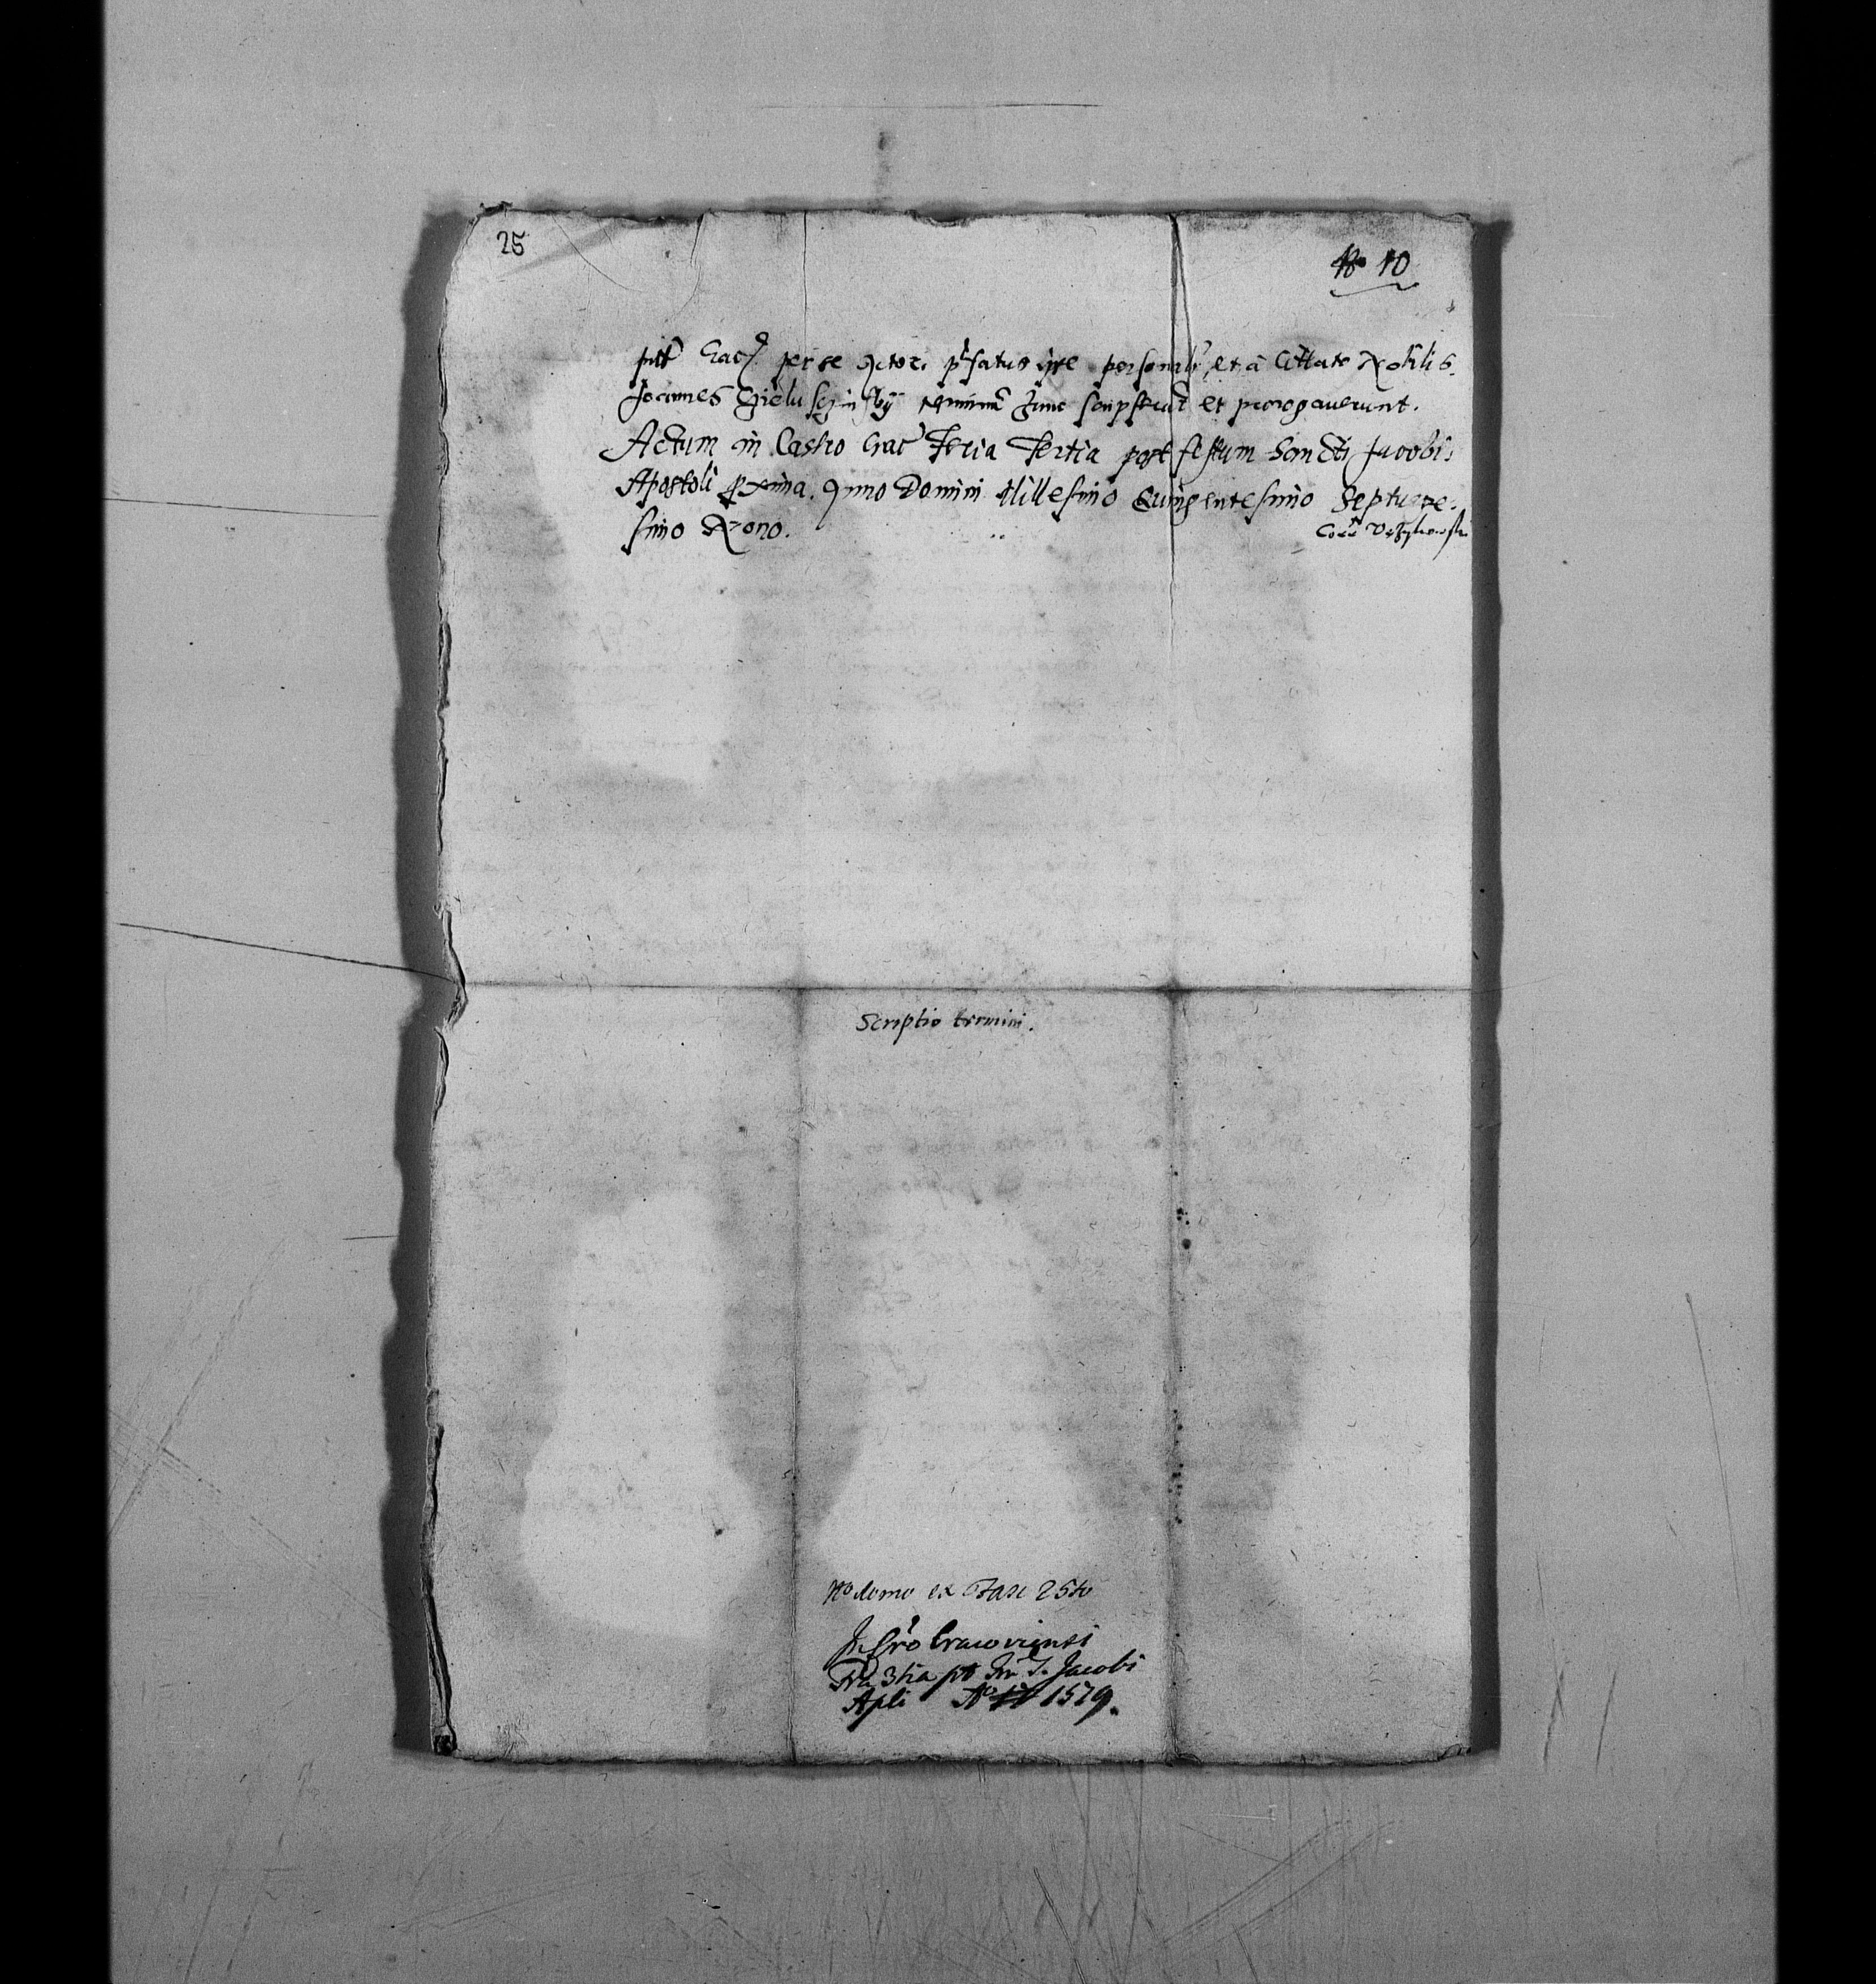 25
No 10
Crac. per se Actore, prfatus ipse personalr, et a Cittato Nobilis
Joannes Gieluschinsky terminu hunc scripserut et prorogauerunt.
Actum in Castro Crac Feria Tertia post festum Sancti Jacobi
Apostoli Proxima. Anno Domini Millesimo Quingentesimo Septuage-
simo Nono.
Corr
Scriptio termini.
No domo ex Fase 25to
In Cro Cracoviensi
Fra 3tia pt Fm S. Jacobi
Apli Ao 1579.